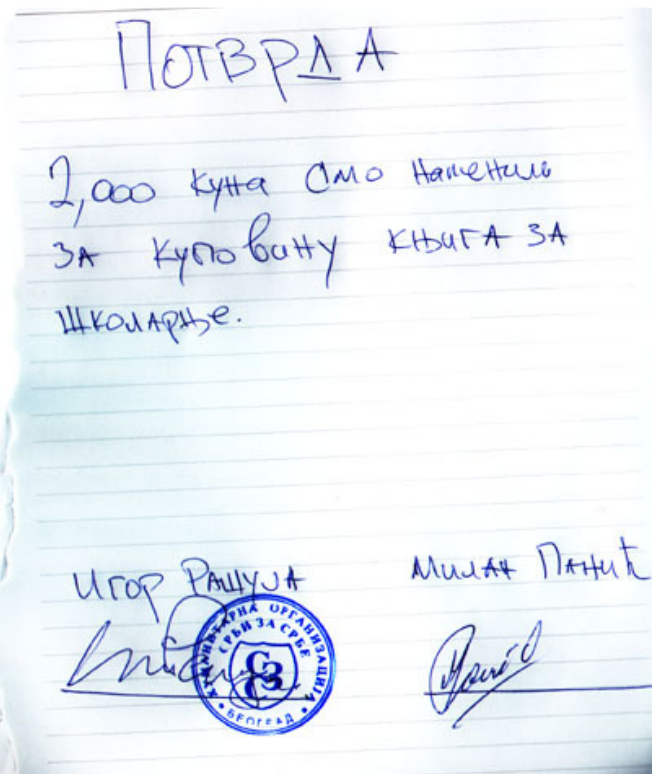 ПОТВРДА
2,000 куна смо наменили
за куповину књига за
школарње.
Игор Рашуја Милан Панић
ХУМАНИТАРНА ОРГАНИЗАЦИЈА
СРБИ ЗА СРБЕ
СЗС
БЕОГРАД